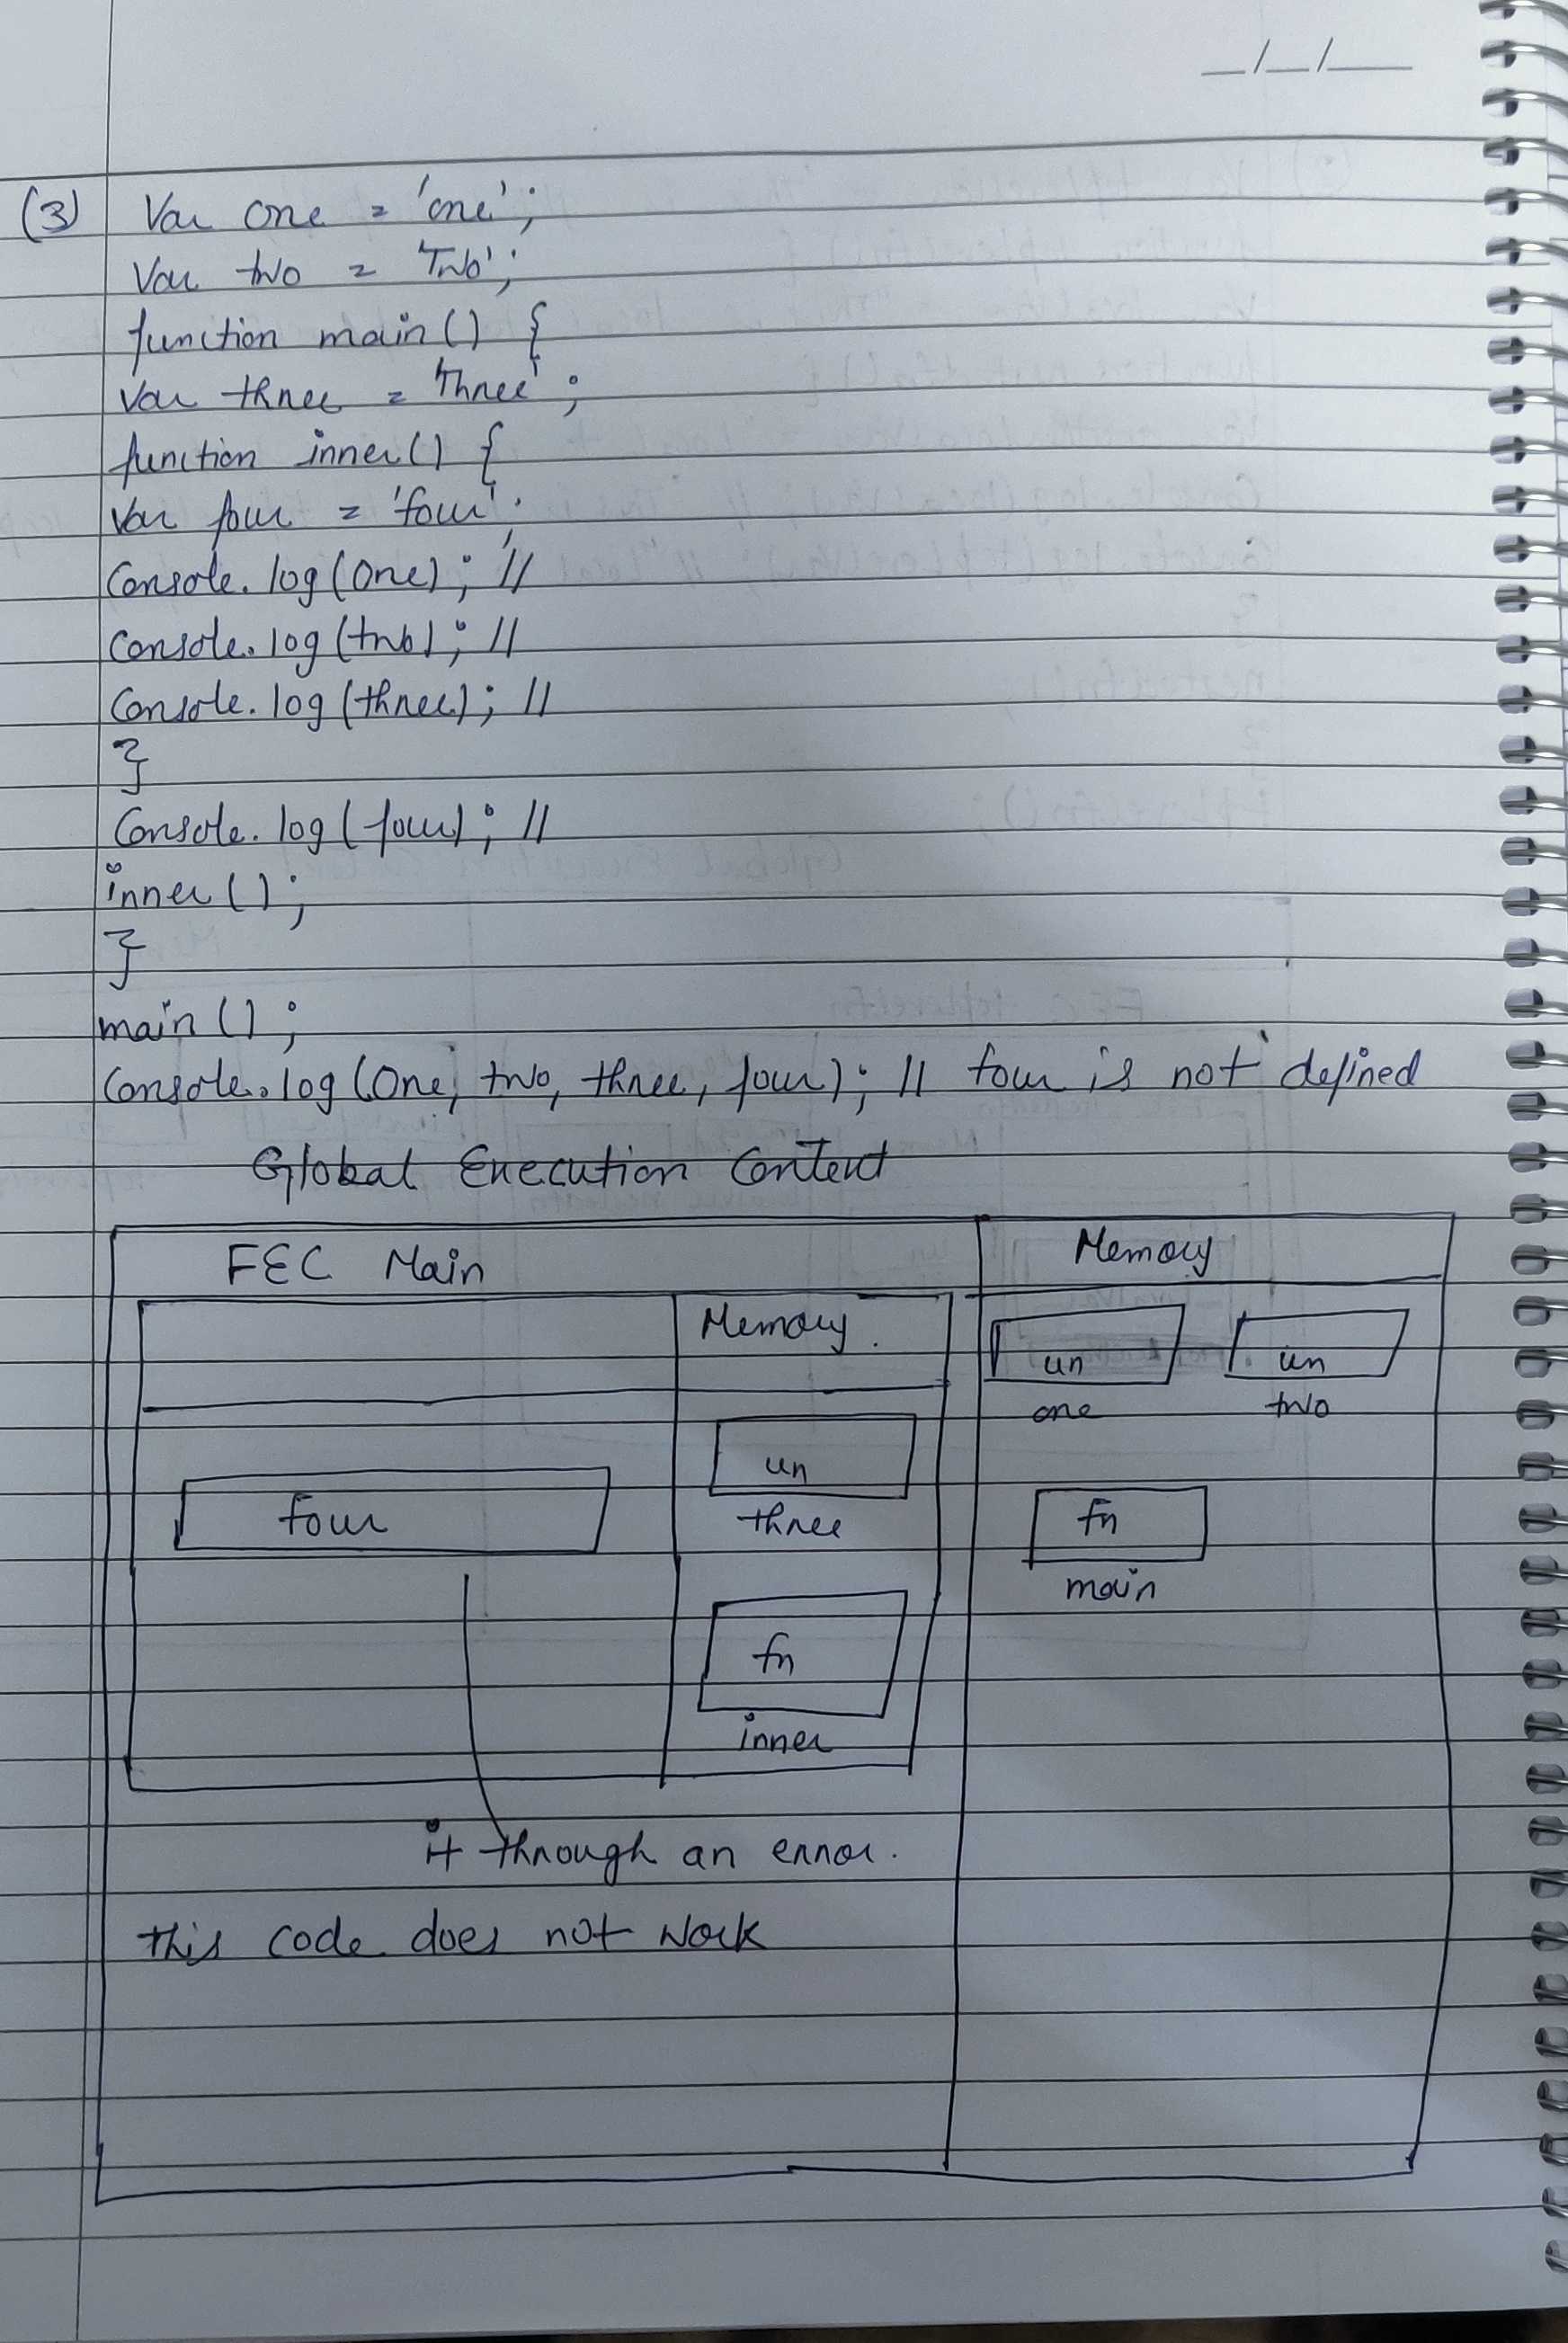 _/_/__
(3) Var one = 'one';
Var two = 'Two';
function main() {
Var three = 'Three';
function inner() {
Var four = 'four';
Console.log(one); //
Console.log(two); //
Console.log(three); //
}
Console.log(four); //
inner();
}
main();
Console.log(One, two, three, four); // four is not defined
Global Execution Context
FEC Main
Memory
Memory.
un
un
one
two
un
four
three
fn
main
fn
inner
it through an error.
this code does not work